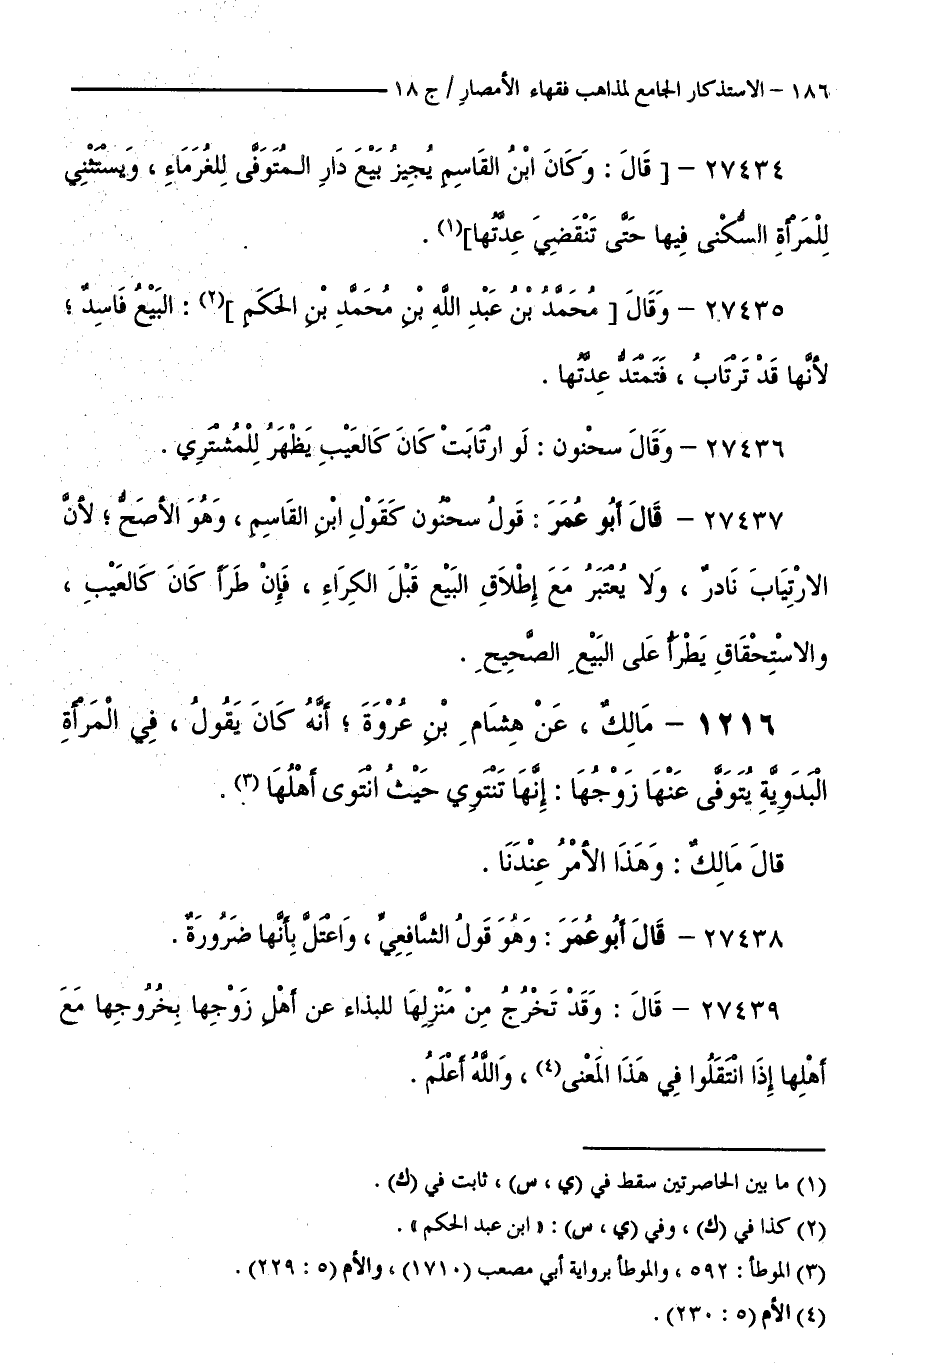 ١٨٦ – الاستذكار الجامع لمذاهب فقهاء الأمصار / ج ١٨
٢٧٤٣٤ – [ قَالَ : وَكَانَ ابْنُ القَاسِمِ يُجِيزُ بَيْعَ دَارِ المُتَوَفَّى لِلغُرَمَاءِ ، وَيَسْتَثْنِي
لِلْمَرْأَةِ السُّكْنى فِيها حَتَّى تَنْقَضِيَ عِدَّتُها](١) .
٢٧٤٣٥ – وَقَالَ [ مُحَمَّدُ بْنُ عَبْدِ اللَّهِ بْنِ مُحَمَّدِ بْنِ الحَكَمِ ](٢) : البَيْعُ فَاسِدٌ ؛
لأنَّها قَدْ تَرْتَابُ ، فَتَمْتَدُّ عِدَّتُها .
٢٧٤٣٦ – وَقَالَ سحْنون : لَو ارْتَابَتْ كَانَ كَالعَيْبِ يَظْهَرُ لِلْمُشْتَرِي .
٢٧٤٣٧ – قَالَ أَبُو عُمَرَ : قَولُ سحْنُون كَقَوْلِ ابْنِ القَاسِمِ ، وَهُوَ الأصَحُّ ؛ لأنَّ
الارْتِيَابَ نَادرٌ ، وَلا يُعْتَبَرُ مَعَ إِطْلاقِ البَيْعِ قَبْلَ الكِرَاءِ ، فَإِنْ طَرَأ كَانَ كَالعَيْبِ ،
والاسْتِحْقَاقِ يَطْرَأُ عَلى البَيْعِ الصَّحِيحِ .
١٢١٦ – مَالِكٌ ، عَنْ هِشَامِ بْنِ عُرْوَةَ ؛ أَنَّهُ كَانَ يَقُولُ ، فِي الْمَرْأَةِ
الْبَدَوِيَّةِ يُتَوَفَّى عَنْهَا زَوْجُهَا : إِنَّهَا تَنْتَوِي حَيْثُ انْتَوى أَهْلُهَا (٣) .
قالَ مَالِكٌ : وَهَذَا الأمْرُ عِنْدَنَا .
٢٧٤٣٨ – قَالَ أَبُو عُمَرَ : وَهُوَ قَولُ الشَّافِعِيِّ ، وَاعْتَلَّ بِأَنَّها ضَرُورَةٌ .
٢٧٤٣٩ – قَالَ : وَقَدْ تَخْرُجُ مِنْ مَنْزِلِهَا للبذاء عن أهْلِ زَوْجِها بِخُرُوجِها مَعَ
أَهْلِها إِذَا انْتَقَلُوا فِي هَذَا المَعْنى(٤) ، وَاللَّهُ أَعْلَمُ .
(١) ما بين الحاصرتين سقط في (ي ، س) ، ثابت في (ك) .
(٢) كذا في (ك) ، وفي (ي ، س) : « ابن عبد الحكم » .
(٣) الموطأ : ٥٩٢ ، والموطأ برواية أبي مصعب (١٧١٠) ، والأم (٥ : ٢٢٩) .
(٤) الأم (٥ : ٢٣٠) .